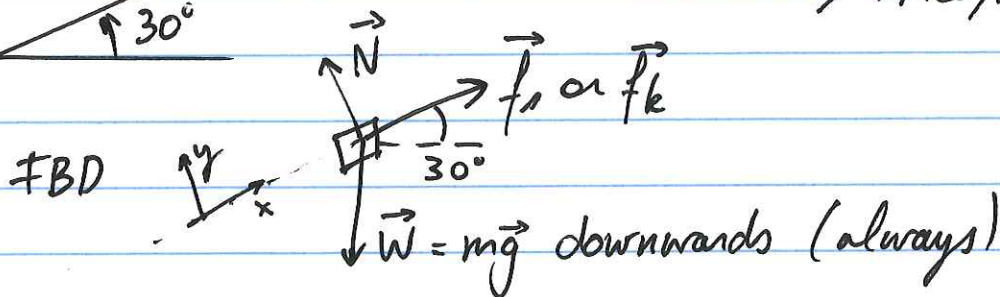 30°
N⃗
f⃗s or f⃗k
30°
FBD
y
x
W⃗ = mg⃗ downwards (always)